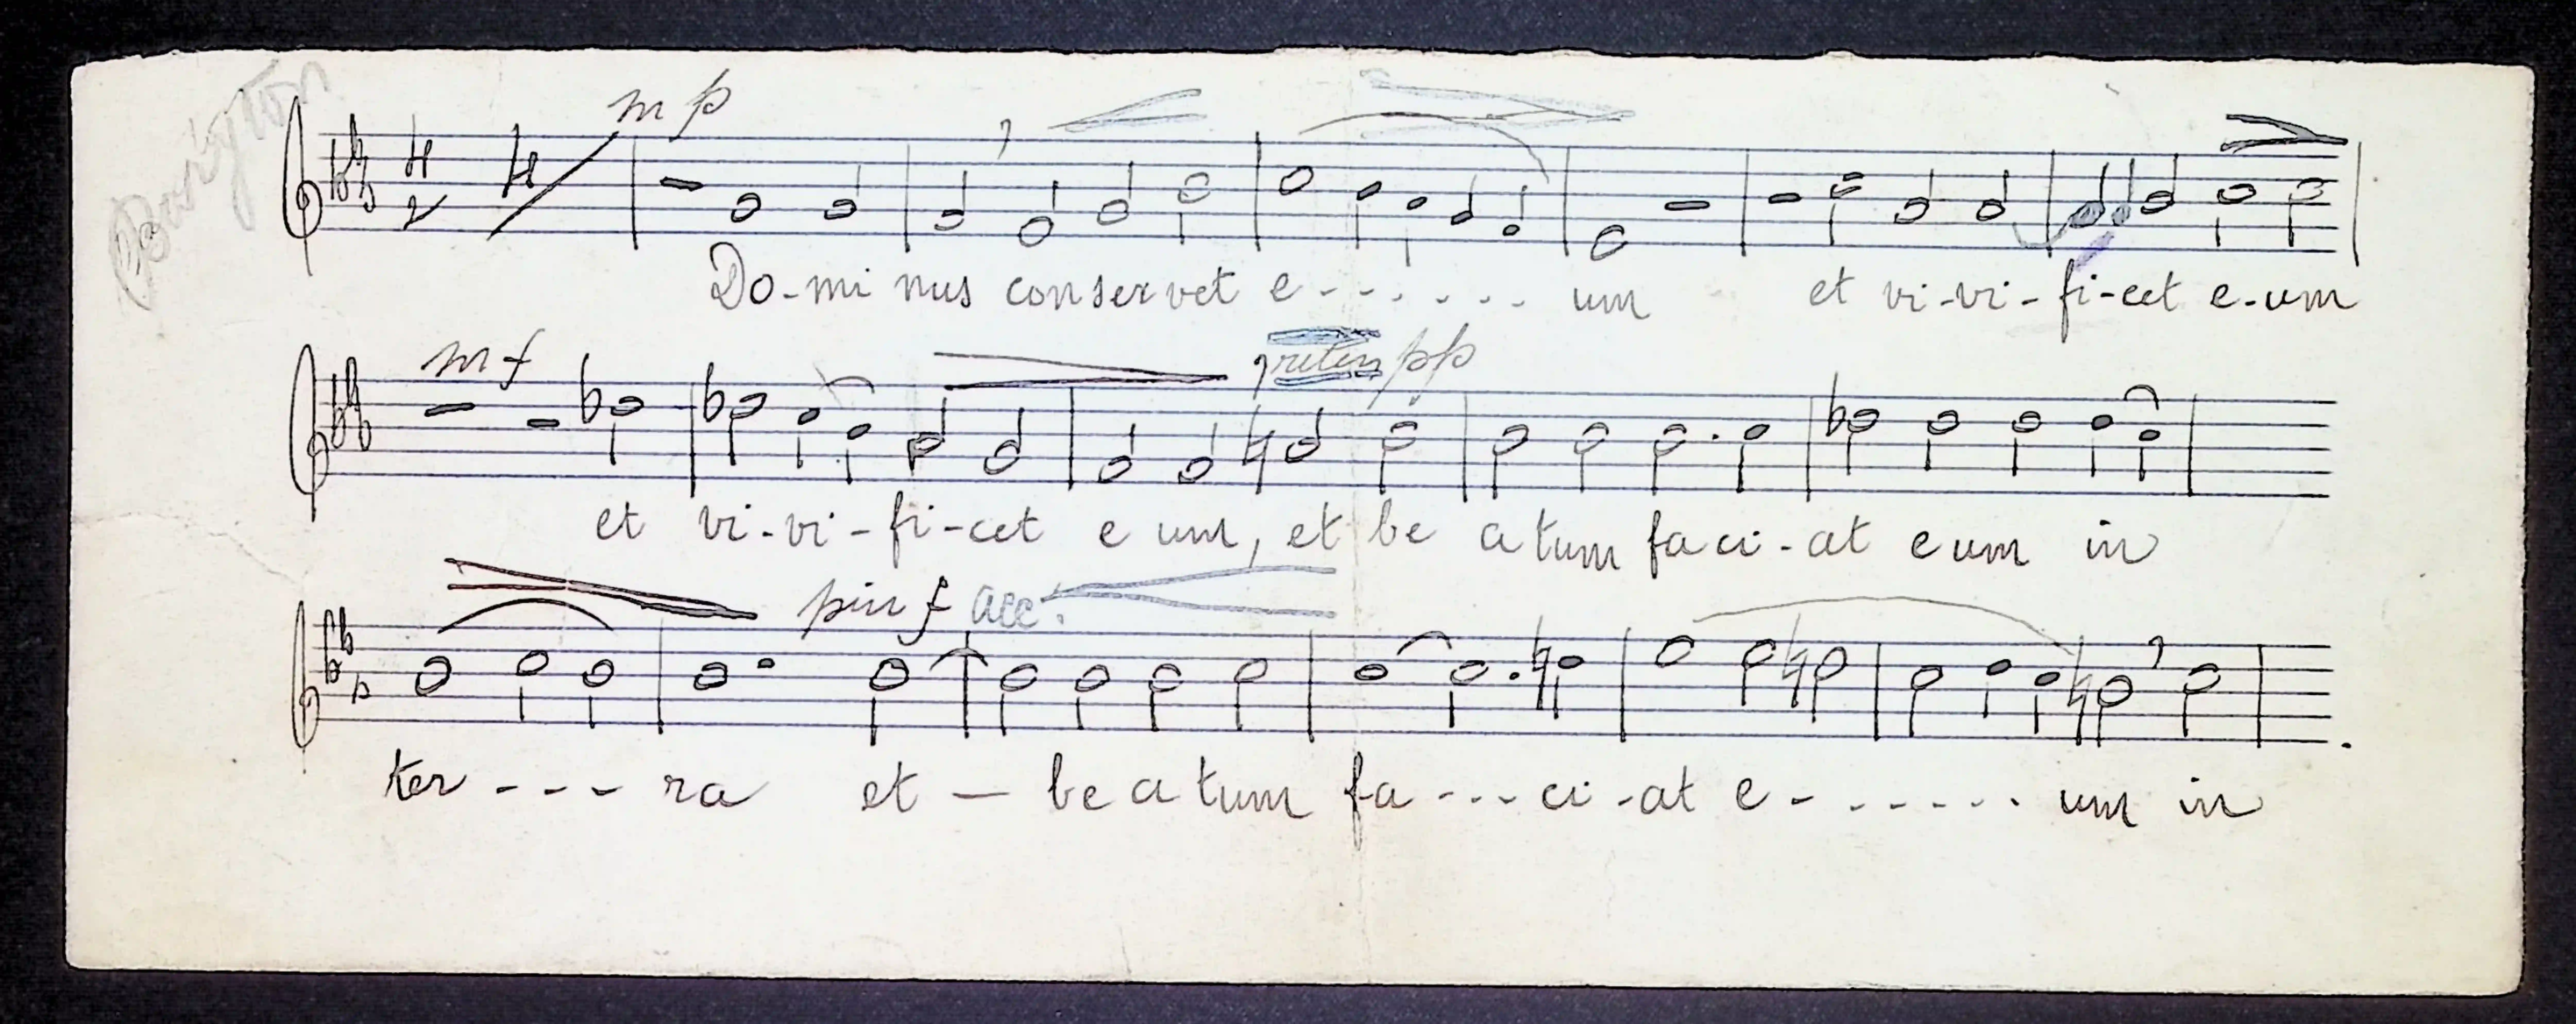 Baryton
4 4
2
mp
Do-mi nus conservet e - - . - - . um et vi-vi-fi-cet e-um
mf riten pp
et vi-vi-fi-cet e um, et be a tum fa ci-at e um in
piu f acc.
ter - - - ra et — be a tum fa - - - ci-at e - . - - - - . um in